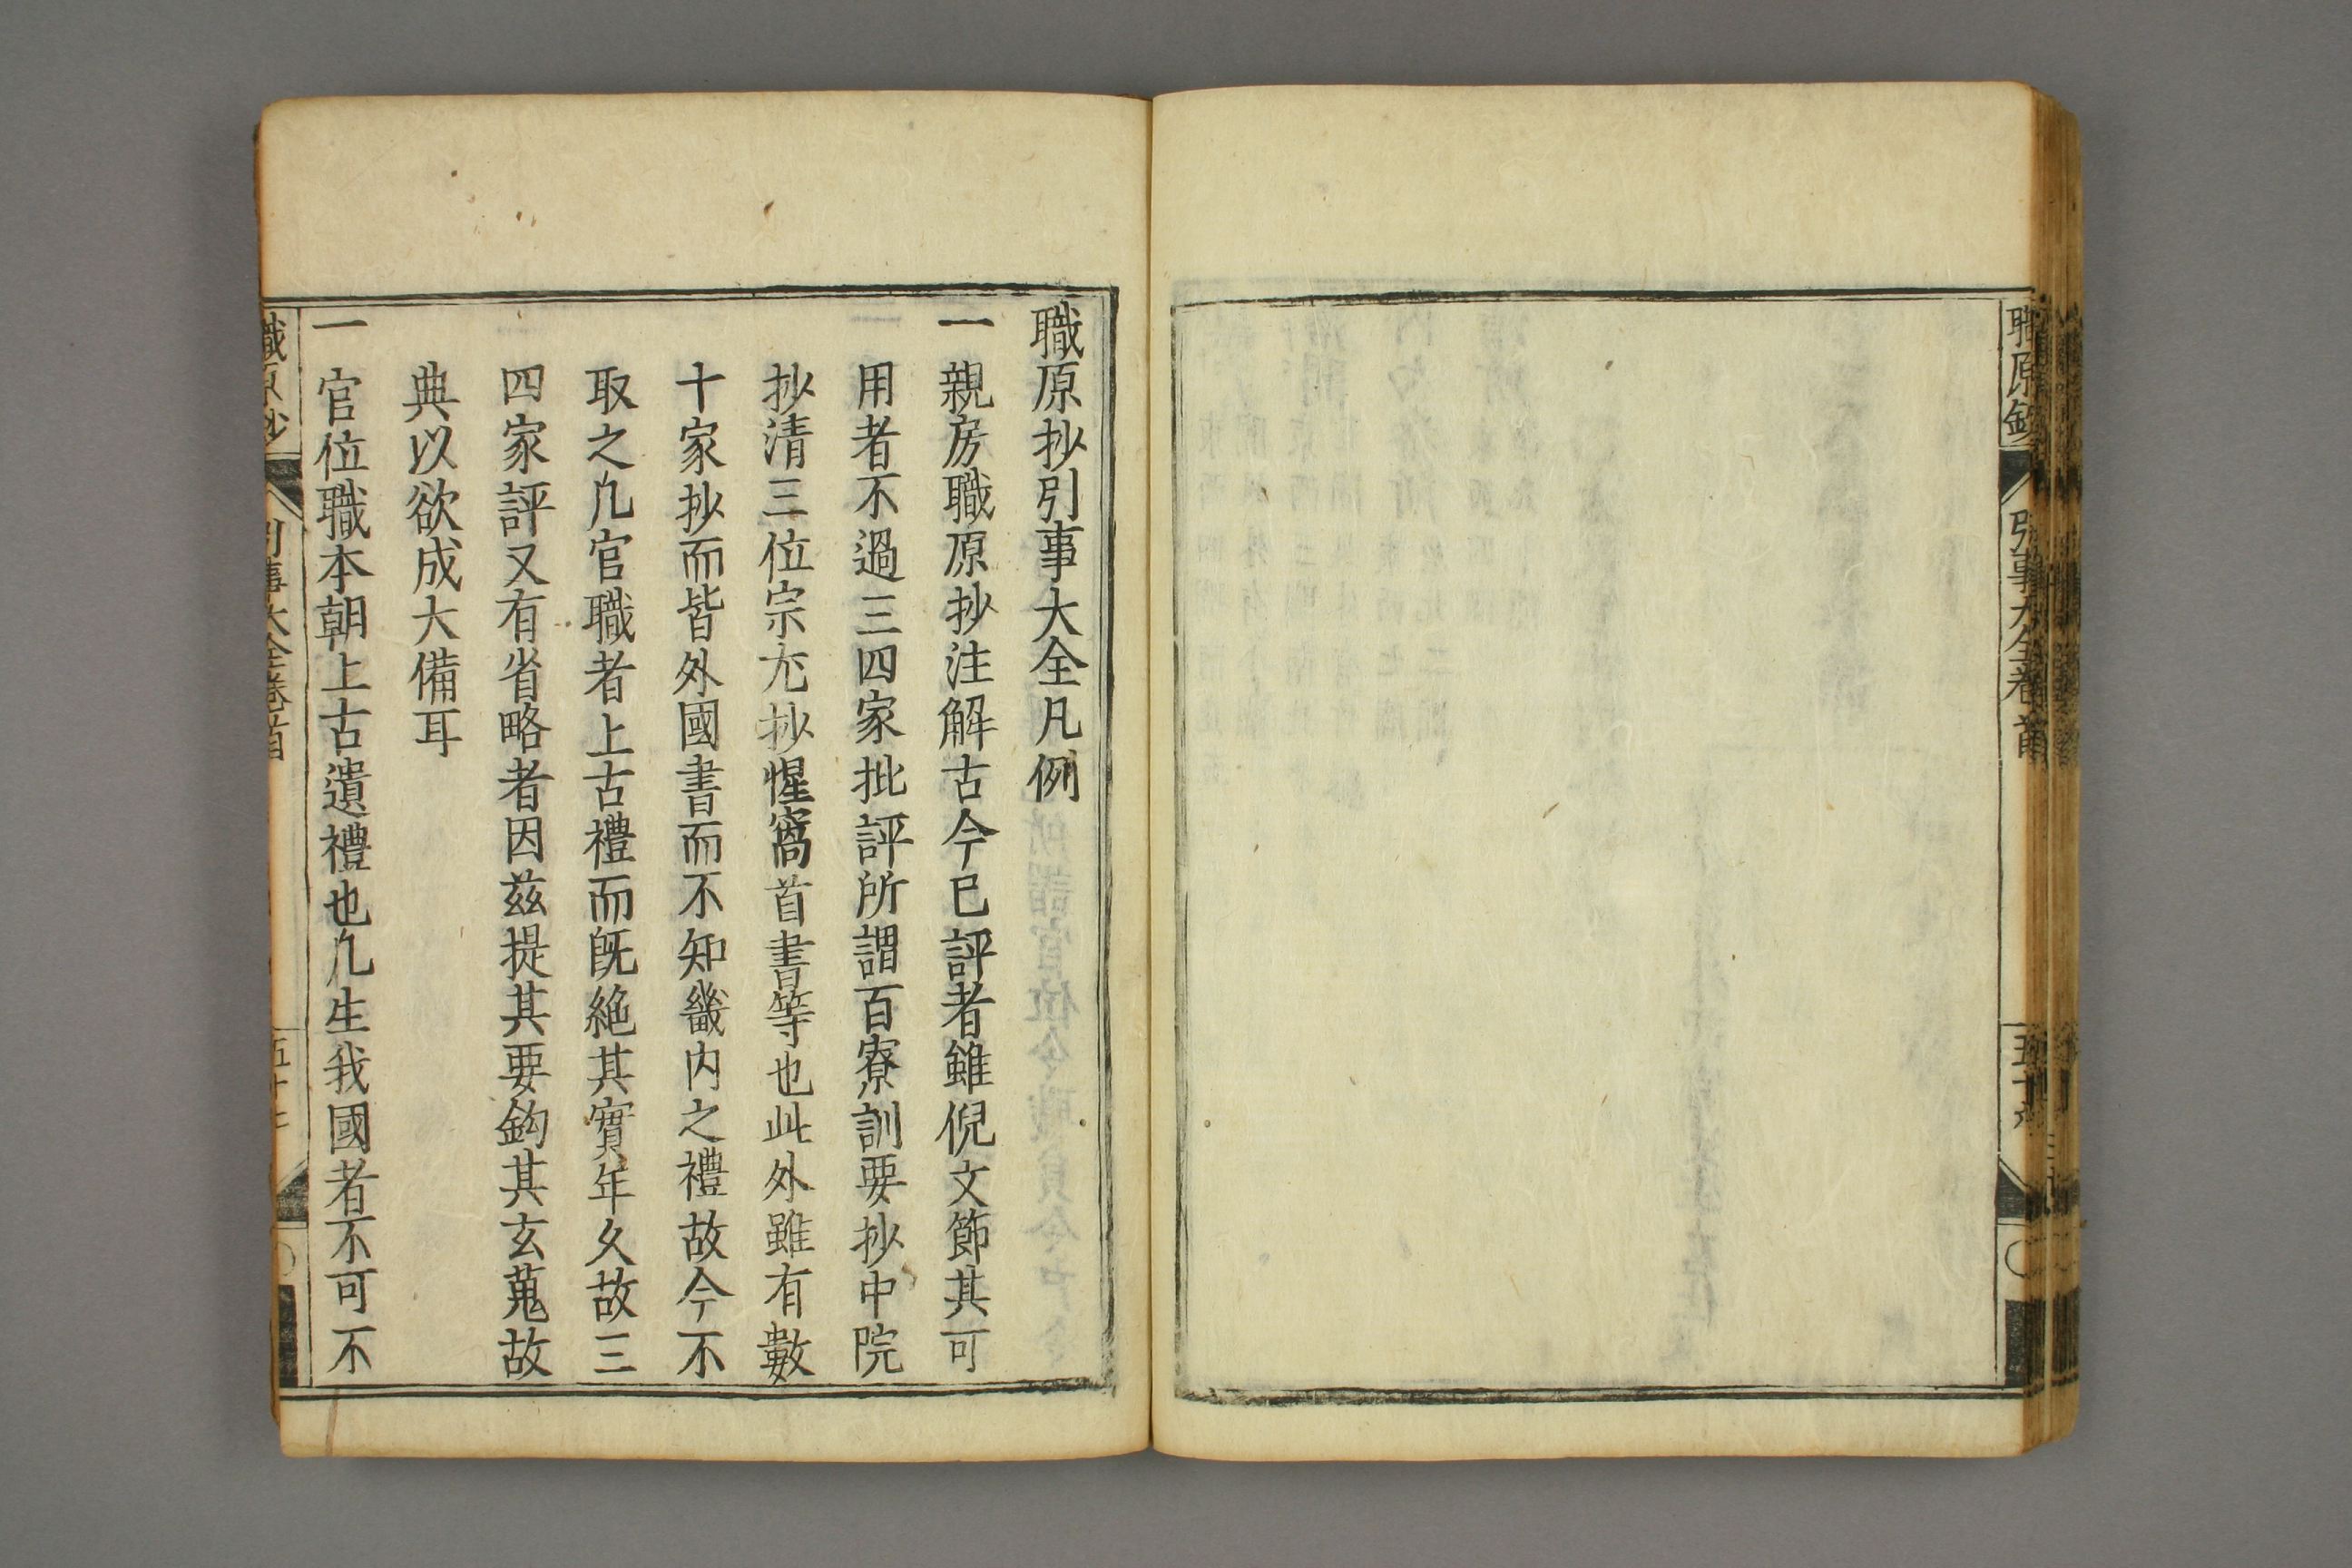 職原鈔
引事大全卷首
職原抄引事大全凡例
一親房職原抄注解古今已評者雖倪文節其可
用者不過三四家批評所謂百寮訓要抄中院
抄清三位宗尤抄惺窩首書等也此外雖有數
十家抄而皆外國書而不知畿内之禮故今不
取之凡官職者上古禮而既絶其實年久故三
四家評又有省略者因茲提其要鈎其玄蒐故
典以欲成大備耳
一官位職本朝上古遺禮也凡生我國者不可不
職原抄
引事大全卷首